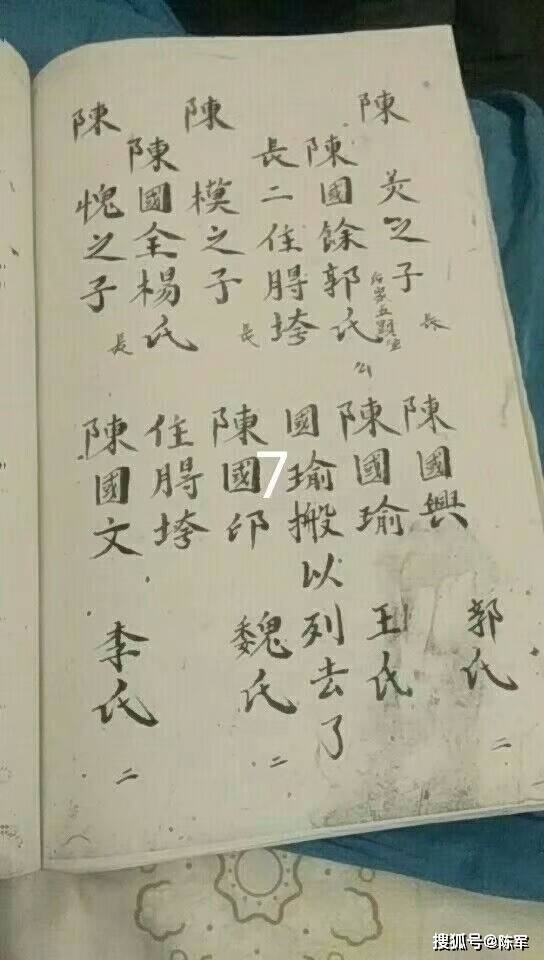 陳 之子 長
陳國餘郭氏
長二住垮
陳 模之子 長
陳國全楊氏
陳 愧之子 長
陳國興 郭氏 二
陳國瑜 王氏
國瑜搬以列去了
陳國 魏氏 二
住垮
陳國文 李氏 二
7
搜狐号@陈军